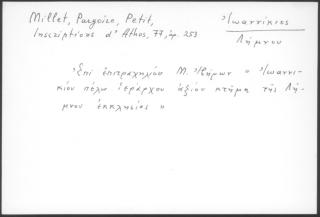 Millet, Pargoire, Petit,
Inscriptions d'Athos, 77, ἀρ. 253
Ἰωαννίκιος
Λήμνου
Ἐπὶ ἐπιτραχηλίου Μ. Ἰβήρων " Ἰωαννι-
κίου πέλω ἱεράρχου ἄξιον κτῆμα τῆς Λή-
μνου ἐκκλησίας "